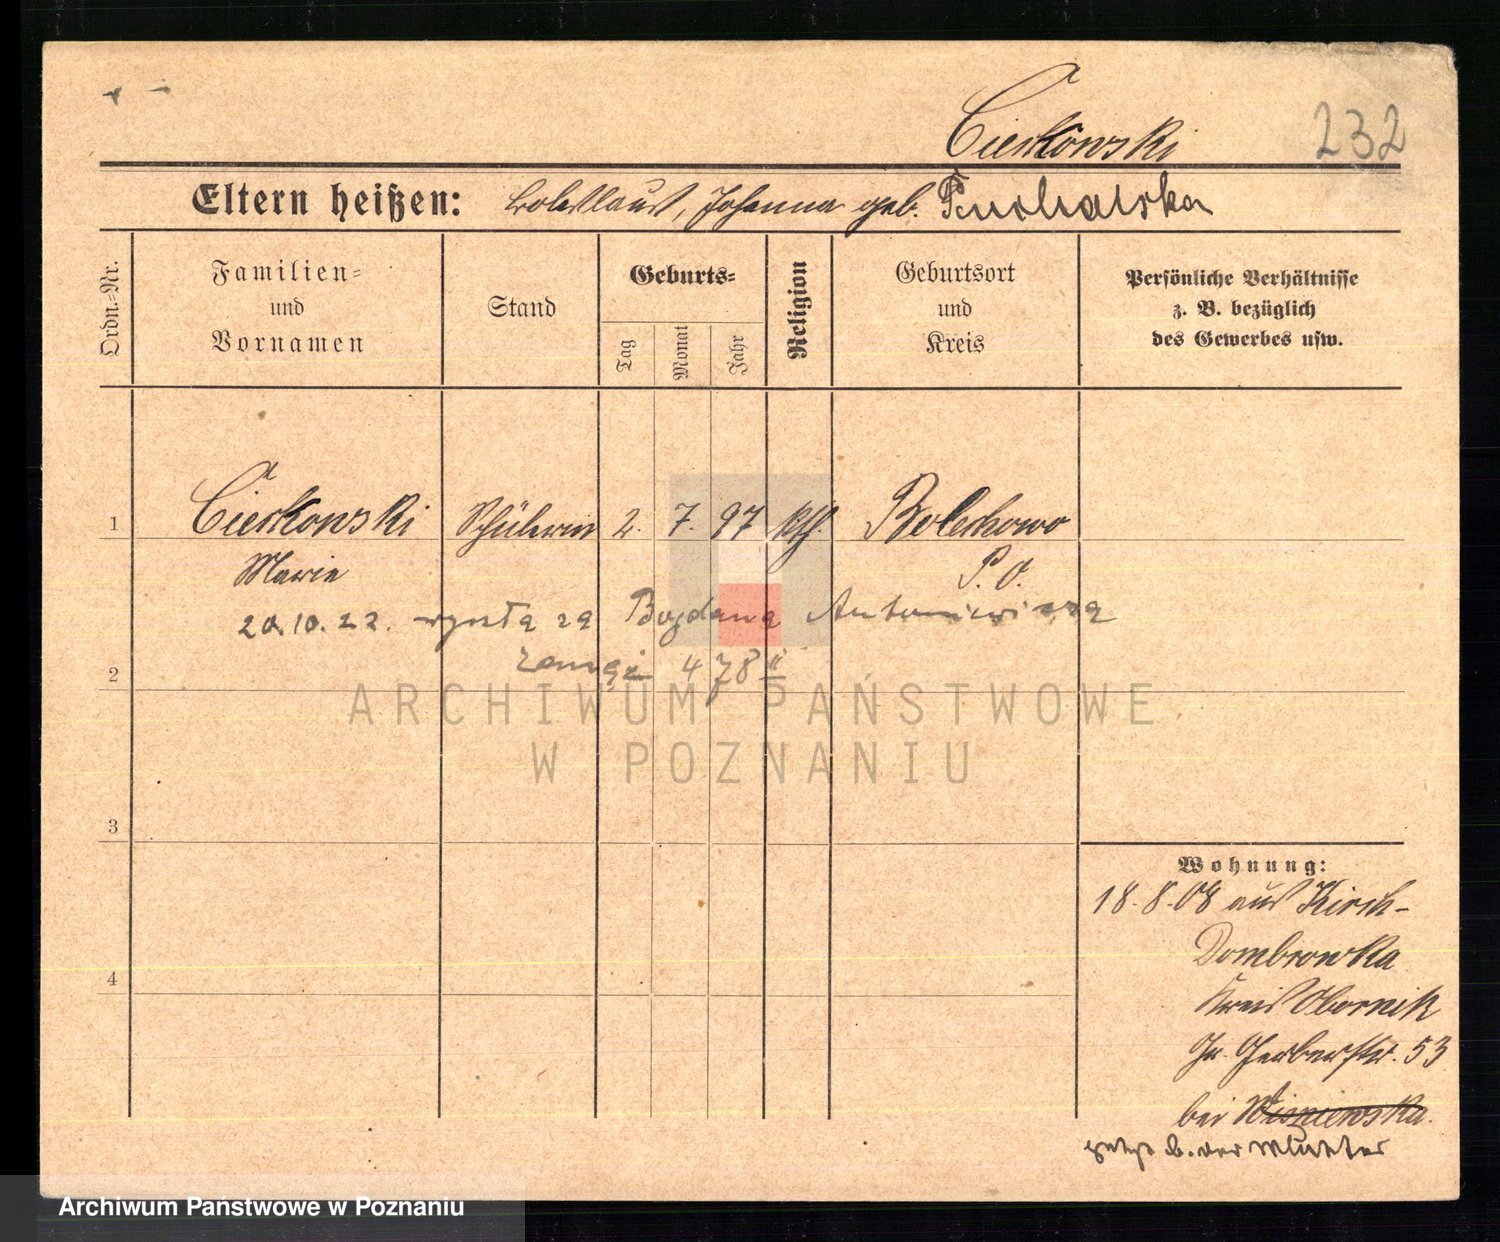 Cieskowski
232
Eltern heißen: Boleslaus, Johanna geb. Puchalska
Ordn.-Nr.
Familien-
und
Vornamen
Stand
Geburts-
Tag
Monat
Jahr
Religion
Geburtsort
und
Kreis
Persönliche Verhältnisse
z. B. bezüglich
des Gewerbes usw.
1
Cieskowski Schülerin 2. 7. 97 kth. Bolechowo
Marie P. O.
20.10.22. wyszła za Bogdana Antoniewicza
zamąż 4 78
2
ARCHIWUM PAŃSTWOWE
W POZNANIU
3
Wohnung:
18.8.08 aus Kirch-
Dombrowka
4
Kreis Obornik
Gr. Gerberstr. 53
bei Wisniewska.
b. der Mutter
Archiwum Państwowe w Poznaniu